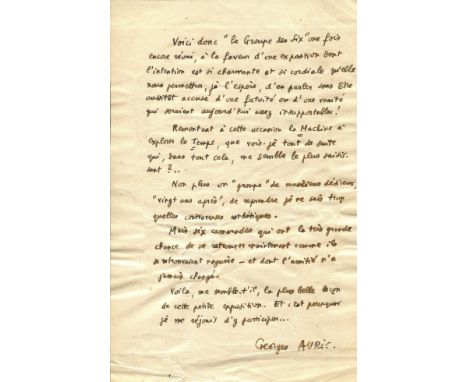 Voici donc "le Groupe des Six" une fois
encore réuni, à la faveur d'une exposition dont
l'intention est si charmante et si cordiale qu'elle
nous permettra, je l'espère, d'en parler sans être
aussitôt accusé d'une fatuité ou d'une vanité
qui seraient aujourd'hui assez insupportables!
Remontant à cette occasion la Machine à
explorer le Temps, que vois-je tout de suite
qui, dans tout cela, me semble le plus saisis-
sant?..
Non plus un "groupe" de musiciens désireux,
"vingt ans après", de reprendre je ne sais trop
quelles controverses esthétiques.
Mais six camarades qui ont la très grande
chance de se retrouver maintenant comme ils
se retrouvaient naguère - et dont l'amitié n'a
jamais changé.
Voilà, me semble-t'il, la plus belle leçon
de cette petite exposition. Et c'est pourquoi
je me réjouis d'y participer...
Georges AURIC.